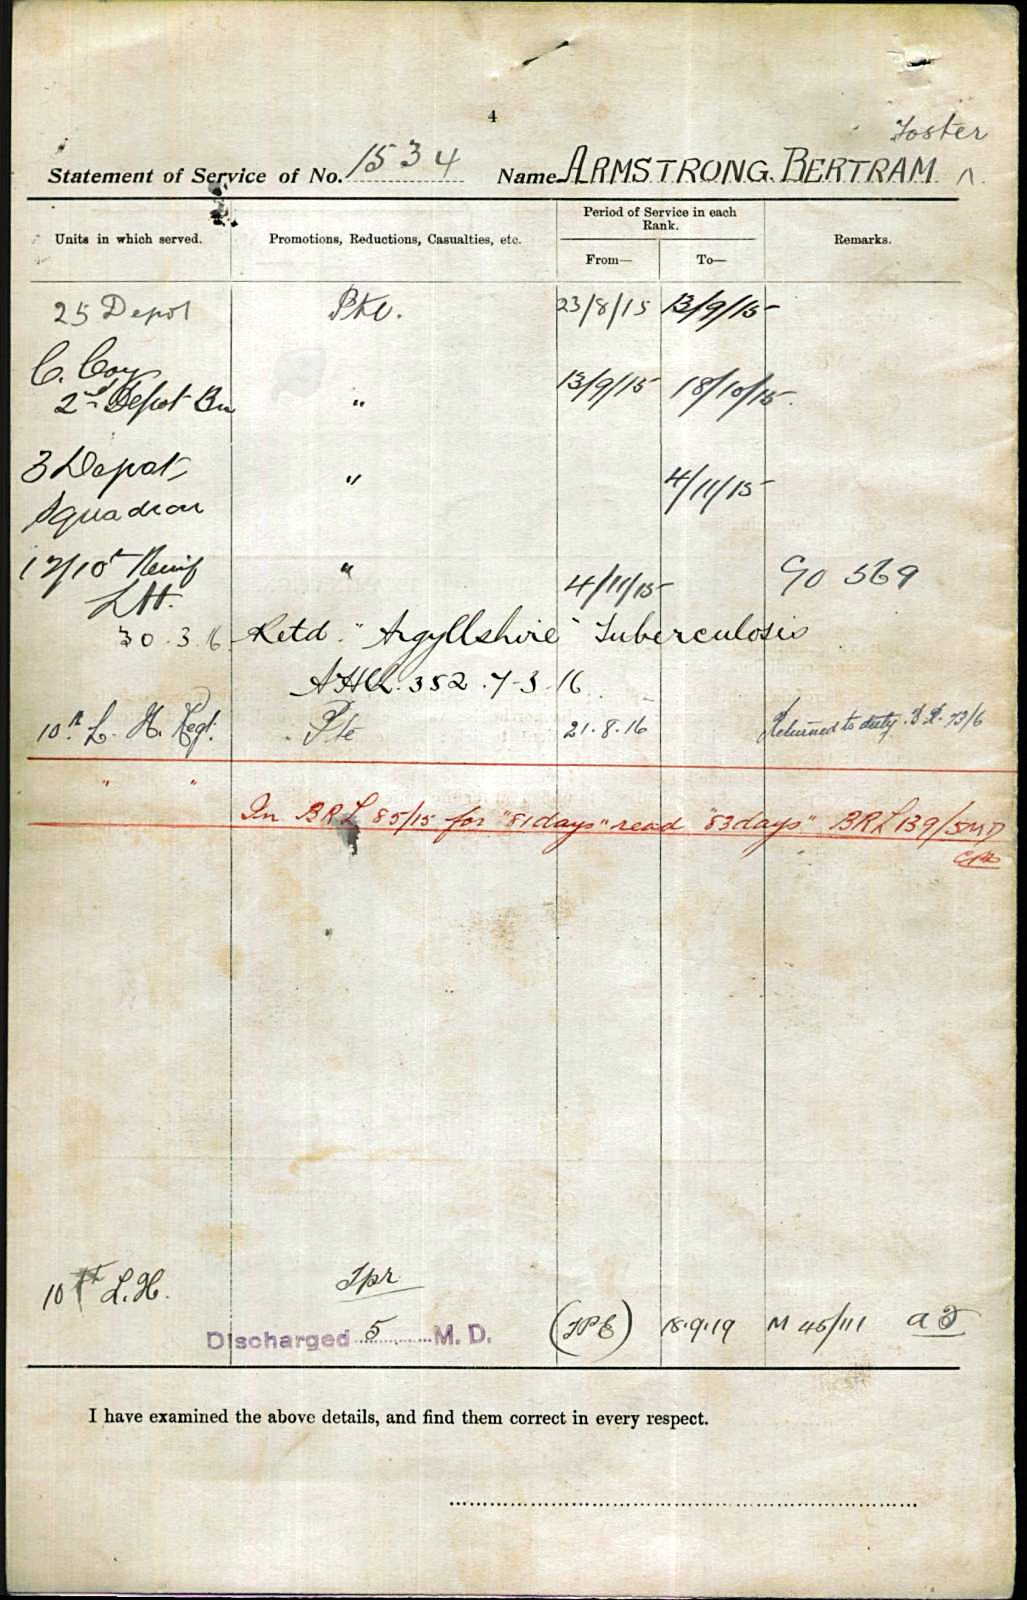 4
Foster
Statement of Service of No. 1534 Name ARMSTRONG. BERTRAM ^.
Units in which served. Promotions, Reductions, Casualties, etc. Period of Service in each Rank. From— To— Remarks.
25 Depot Pte. 23/8/15 13/9/15
C. Coy
2nd Depot Bn " 13/9/15 18/10/15.
3 Depot " 4/11/15
Squadron
12/10th Reinf " 4/11/15 GO 569
LH.
30.3.16 Retd. "Argyllshire" Tuberculosis
352.7-3-16
10th L. H. Regt. Pte 21.8.16 Returned to duty. 73/6
" "
In BRL 85/15 for "81 days" read "83 days" BRL 139/5MD
10th L.H. Tpr
Discharged 5 M. D. (TPE) 18.9.19 M 45/111
I have examined the above details, and find them correct in every respect.